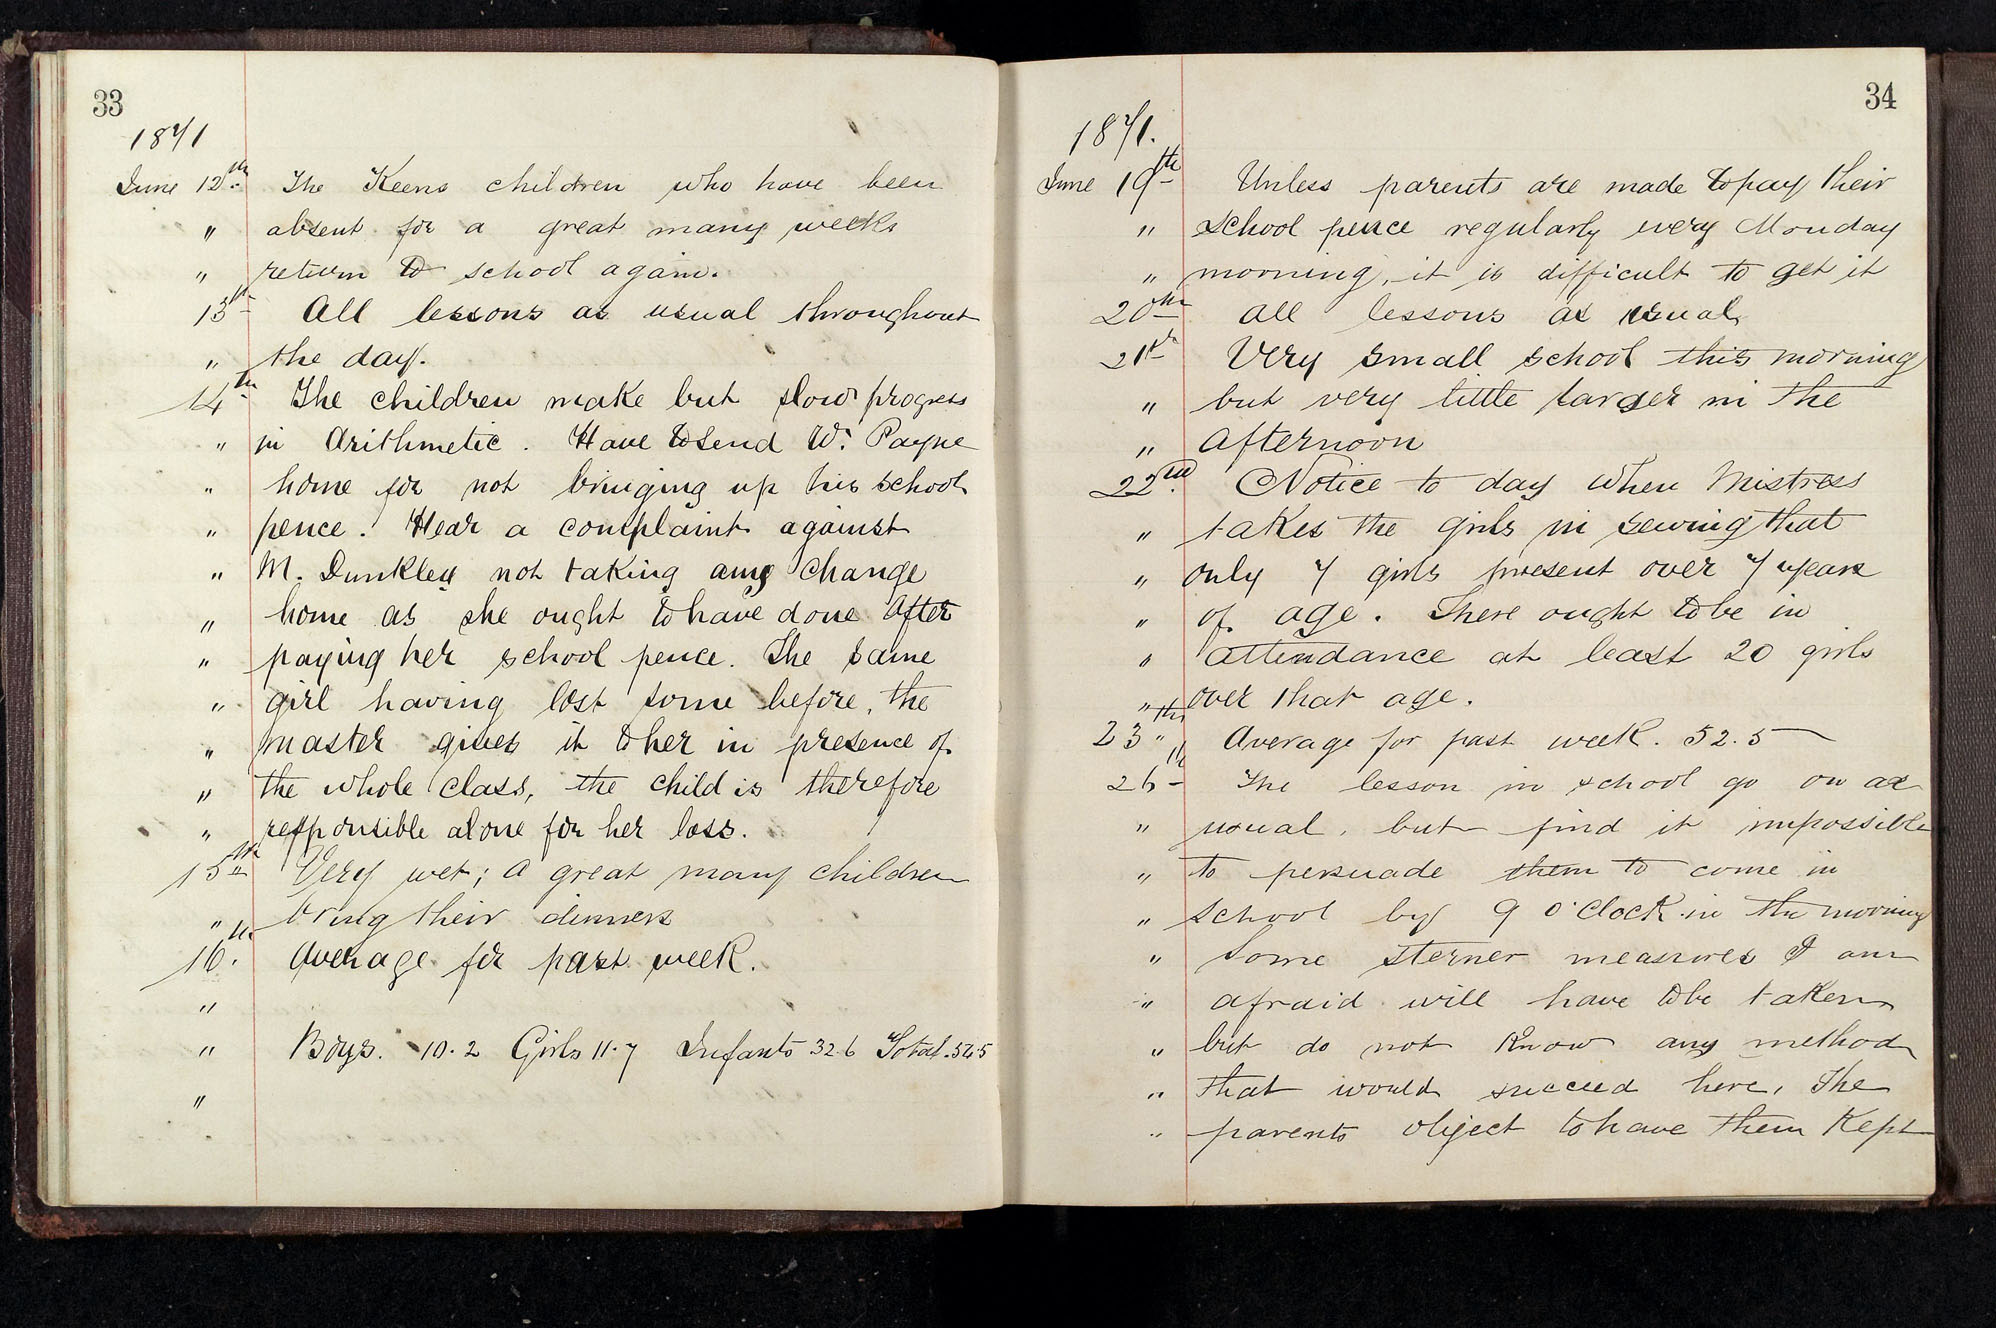 33
1871
June 12th The Keens children who have been
" absent for a great many weeks
" return to school again.
13th All lessons as usual throughout
" the day.
14th The children make but slow progress
" in Arithmetic. Have to send W. Payne
" home for not bringing up his school
" pence. Hear a complaint against
" M. Dunkley not taking any change
" home as she ought to have done after
" paying her school pence. The same
" girl having lost some before, the
" master gives it to her in presence of
" the whole class, the child is therefore
" responsible alone for her loss.
15th Very wet; a great many children
" bring their dinners
16th Average for past week.
"
" Boys. 10.2 Girls 11.7 Infants 32.6 Total. 54.5
"
34
1871.
June 19th Unless parents are made to pay their
" school pence regularly every Monday
" morning, it is difficult to get it
20th All lessons as usual
21st Very small school this morning
" but very little larger in the
" afternoon
22nd Notice to day when Mistress
" takes the girls in sewing that
" only 7 girls present over 7 years
" of age. There ought to be in
" attendance at least 20 girls
" over that age.
23rd " Average for past week. 52.5
26th The lesson in school go on as
" usual, but find it impossible
" to persuade them to come in
" school by 9 o'clock in the morning
" Some sterner measures I am
" afraid will have to be taken
" but do not know any method
" that would succeed here. The
" parents object to have them kept